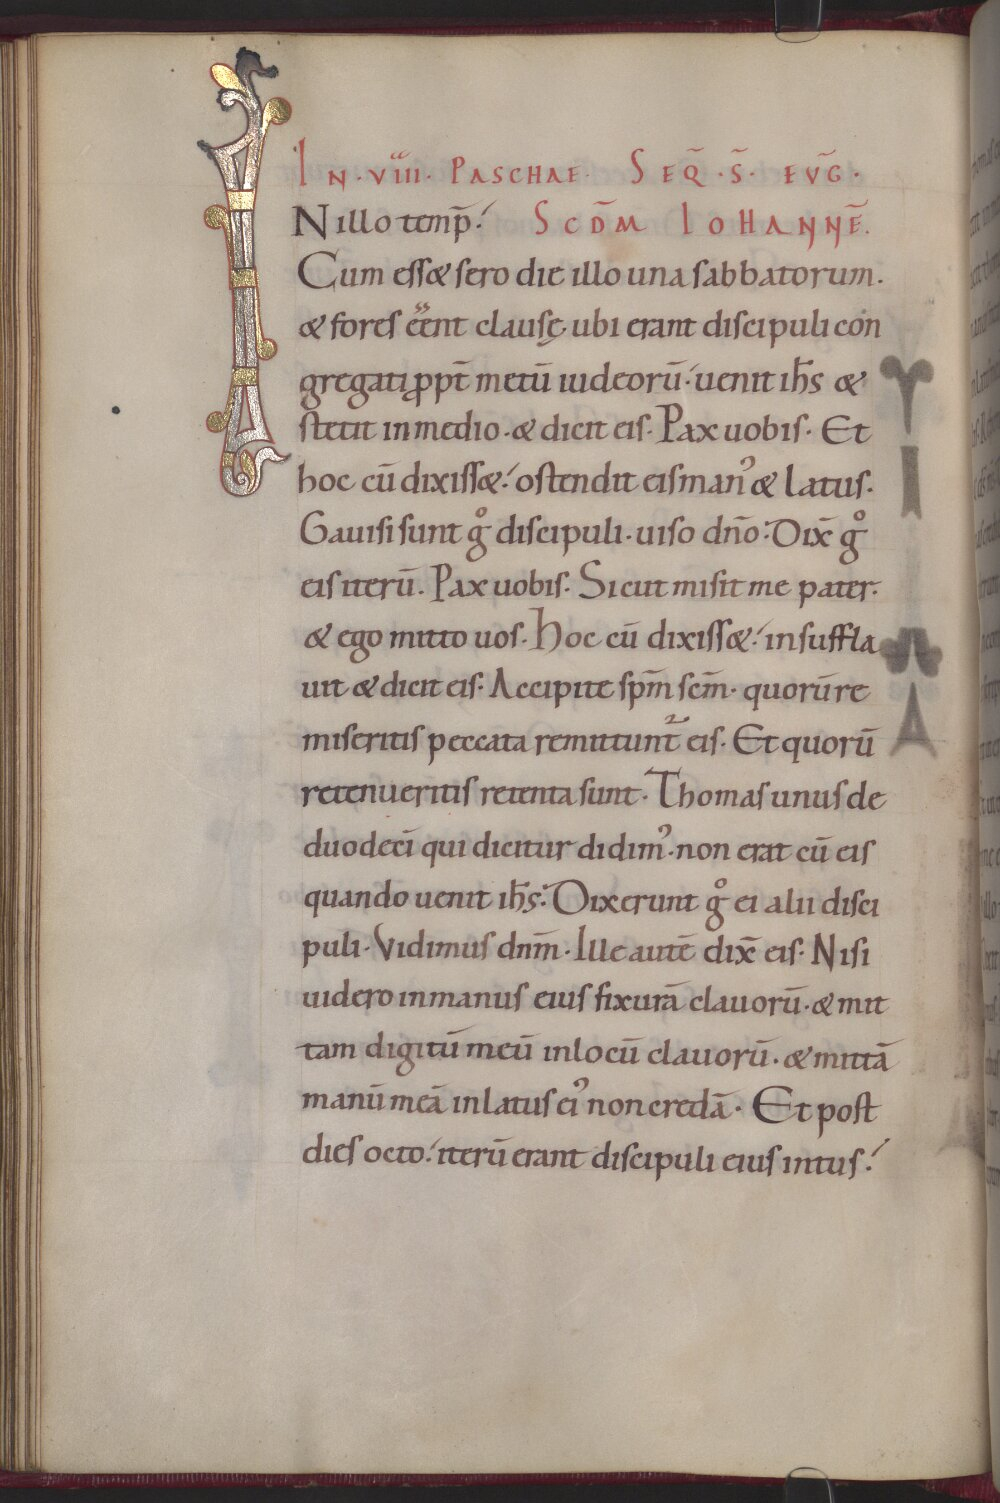 IN · VIIIᵃ · PASCHAE · SEQ̄ · S̄ · EVG̅ ·
IN illo temp̄ SCD̄M IOHANNĒ.
Cum essæ sero die illo una sabbatorum.
æ fores eent clausę ubi erant discipuli con
gregati ꝓpt̄ metū iudeorū uenit ih̄s æ
stetit in medio · æ dicit eis · Pax uobis · Et
hoc cū dixissæ ostendit eis man᾽ æ latus ·
Gauisi sunt g° discipuli · uiso dn̄o · Dix̄ g°
eis iterū. Pax uobis · Sicut misit me pater ·
æ ego mitto uos · Hoc cū dixissæ insuffla
uit æ dicit eis · Accipite sp̄m sc̄m · quorū re
miseritis peccata remittunt᷑ eis · Et quorū
retenueritis retenta sunt · Thomas unus de
duodeci̅ qui dicitur didim᾽ · non erat cū eis
quando uenit ih̄s · Dixerunt g° ei alii disci
puli · Vidimus dnm̄ · Ille autē dix̄ eis · Nisi
uidero in manus eius fixurā clauorū · æ mit
tam digitū meū in locū clauorū · æ mittā
manū meā in latus ei᾽ non credā · Et post
dies octo iterū erant discipuli eius intus